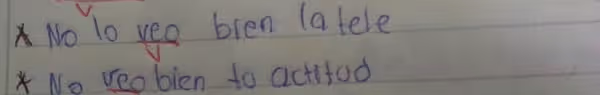 * No lo veo bien la tele
* No veo bien to actitud